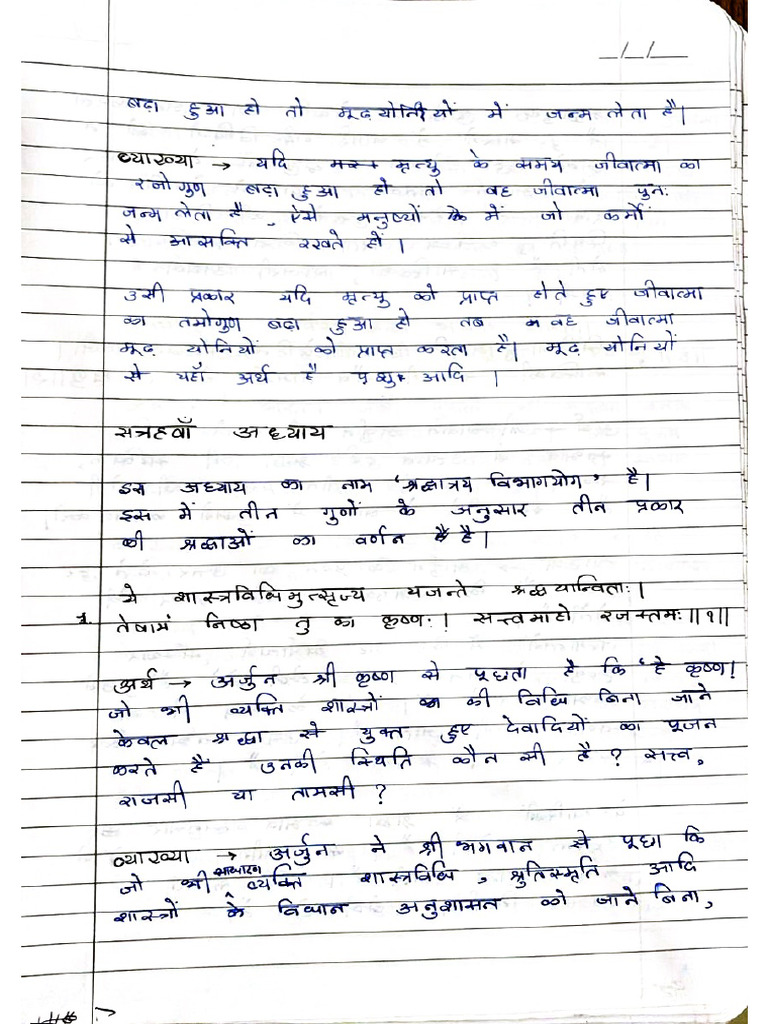 _/_/_
बढ़ा हुआ हो तो मूढयोनियों में जन्म लेता है।
व्याख्या → यदि मृत्यु के समय जीवात्मा का
रजोगुण बढ़ा हुआ हो तो वह जीवात्मा पुनः
जन्म लेता है, ऐसे मनुष्यों में जो कर्मों
से आसक्ति रखते हों।
उसी प्रकार यदि मृत्यु को प्राप्त होते हुए जीवात्मा
का तमोगुण बढ़ा हुआ हो तब वह जीवात्मा
मूढ योनियों को प्राप्त करता है। मूढ योनियों
से यहाँ अर्थ है पशु आदि।
सत्रहवाँ अध्याय
इस अध्याय का नाम 'श्रद्धात्रय विभागयोग' है।
इस में तीन गुणों के अनुसार तीन प्रकार
की श्रद्धाओं का वर्णन है।
ये शास्त्रविधिमुत्सृज्य यजन्ते श्रद्धयान्विताः।
1. तेषां निष्ठा तु का कृष्णः। सत्त्वमाहो रजस्तमः॥१॥
अर्थ → अर्जुन श्री कृष्ण से पूछता है कि 'हे कृष्ण!
जो भी व्यक्ति शास्त्रों की विधि बिना जाने
केवल श्रद्धा से युक्त हुए देवादियों का पूजन
करते हैं उनकी स्थिति कौन सी है? सत्त्व,
राजसी या तामसी?
व्याख्या → अर्जुन ने श्री भगवान से पूछा कि
जो भी साधारण व्यक्ति शास्त्रविधि, श्रुतिस्मृति आदि
शास्त्रों के विधान अनुशासन को जाने बिना,